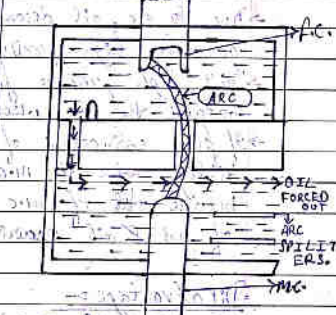 f.C.
ARC
OIL
FORCED
OUT
ARC
SPILIT
ERS.
M.C.